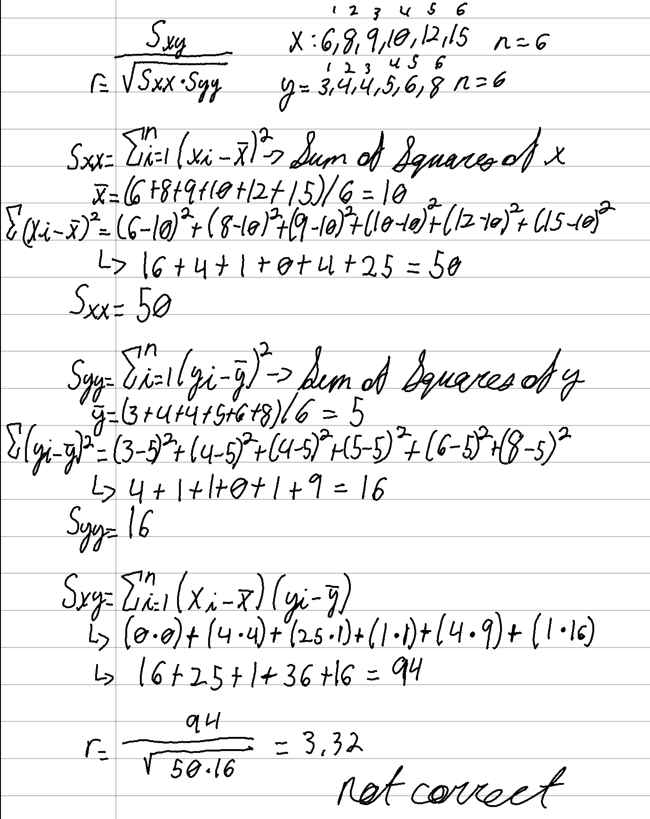 1 2 3 4 5 6
Sxy
r= √Sxx·Syy
x:6,8,9,10,12,15 n=6
1 2 3 4 5 6
y=3,4,4,5,6,8 n=6
Sxx=∑ⁿi=1(xi-x̄)²→ Sum of Squares of x
x̄=(6+8+9+10+12+15)/6=10
∑(xi-x̄)²=(6-10)²+(8-10)²+(9-10)²+(10-10)²+(12-10)²+(15-10)²
↳ 16+4+1+0+4+25=50
Sxx=50
Syy=∑ⁿi=1(yi-ȳ)²→ Sum of Squares of y
ȳ=(3+4+4+5+6+8)/6=5
∑(yi-ȳ)²=(3-5)²+(4-5)²+(4-5)²+(5-5)²+(6-5)²+(8-5)²
↳ 4+1+1+0+1+9=16
Syy=16
Sxy=∑ⁿi=1(xi-x̄)(yi-ȳ)
↳ (0·0)+(4·4)+(25·1)+(1·1)+(4·9)+(1·16)
↳ 16+25+1+36+16=94
94
r= √50·16 =3,32
not correct